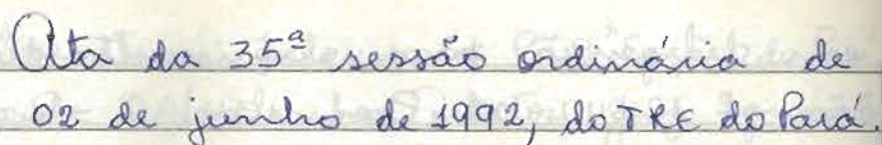 Ata da 35ª sessão ordinária de
02 de junho de 1992, do TRE do Pará.